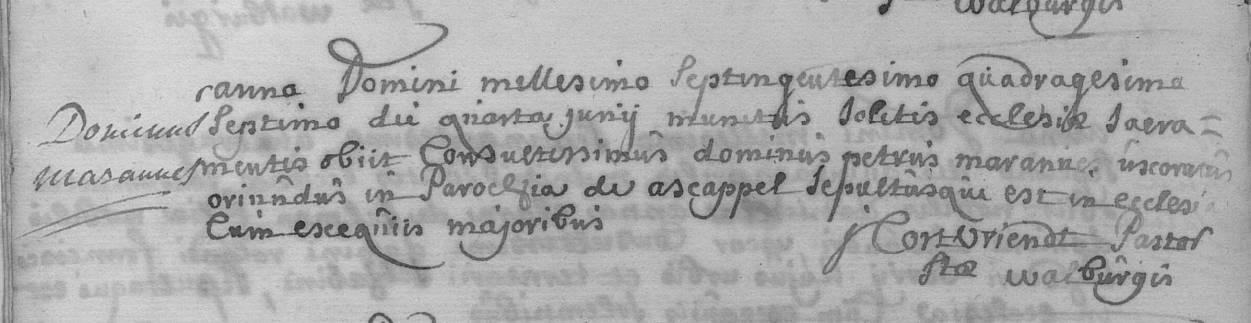 Walburgis
anna Domini mellesimo septingentesimo quadragesima
Dominus septimo die quarta junij munitus solitis ecclesiæ sacra=
marannes mentis obiit Consultissimus dominus petrus marannes uxoratus
oriundus in Parochia de ascappel sepultusque est in ecclesia
Cum exequiis majoribus
j Cortvriendt Pastor
stæ walburgis